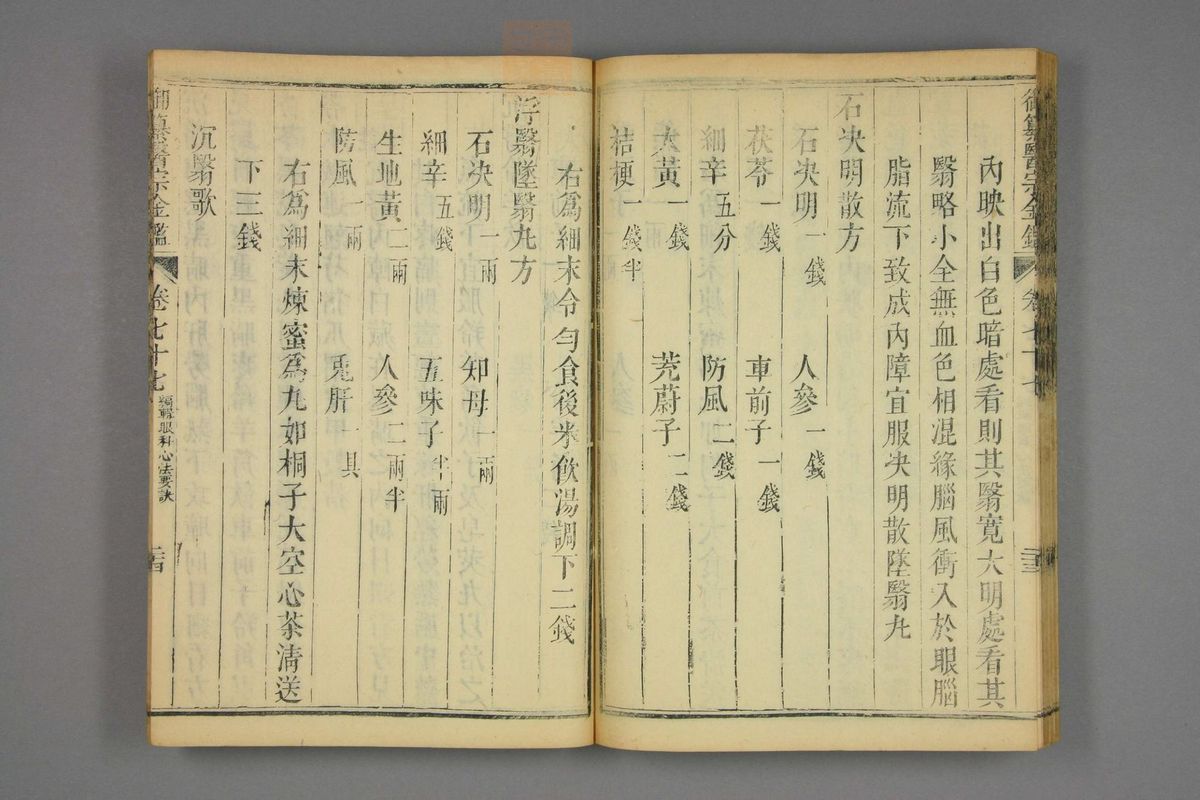 御纂醫宗金鑑 卷七十七 二十三
內映出白色暗處看則其翳寬大明處看其
翳略小全無血色相混緣腦風衝入於眼腦
脂流下致成內障宜服決明散墜翳丸
石決明散方
石決明一錢 人參一錢
茯苓一錢 車前子一錢
細辛五分 防風二錢
大黃一錢 茺蔚子二錢
桔梗一錢半
右爲細末令勻食後米飲湯調下二錢
浮翳墜翳丸方
石決明一兩 知母一兩
細辛五錢 五味子半兩
生地黃二兩 人參二兩半
防風一兩 兎肝一具
右爲細末煉蜜爲丸如桐子大空心茶淸送
下三錢
沉翳歌
御纂醫宗金鑑 卷七十七 編輯眼科心法要訣 二十四